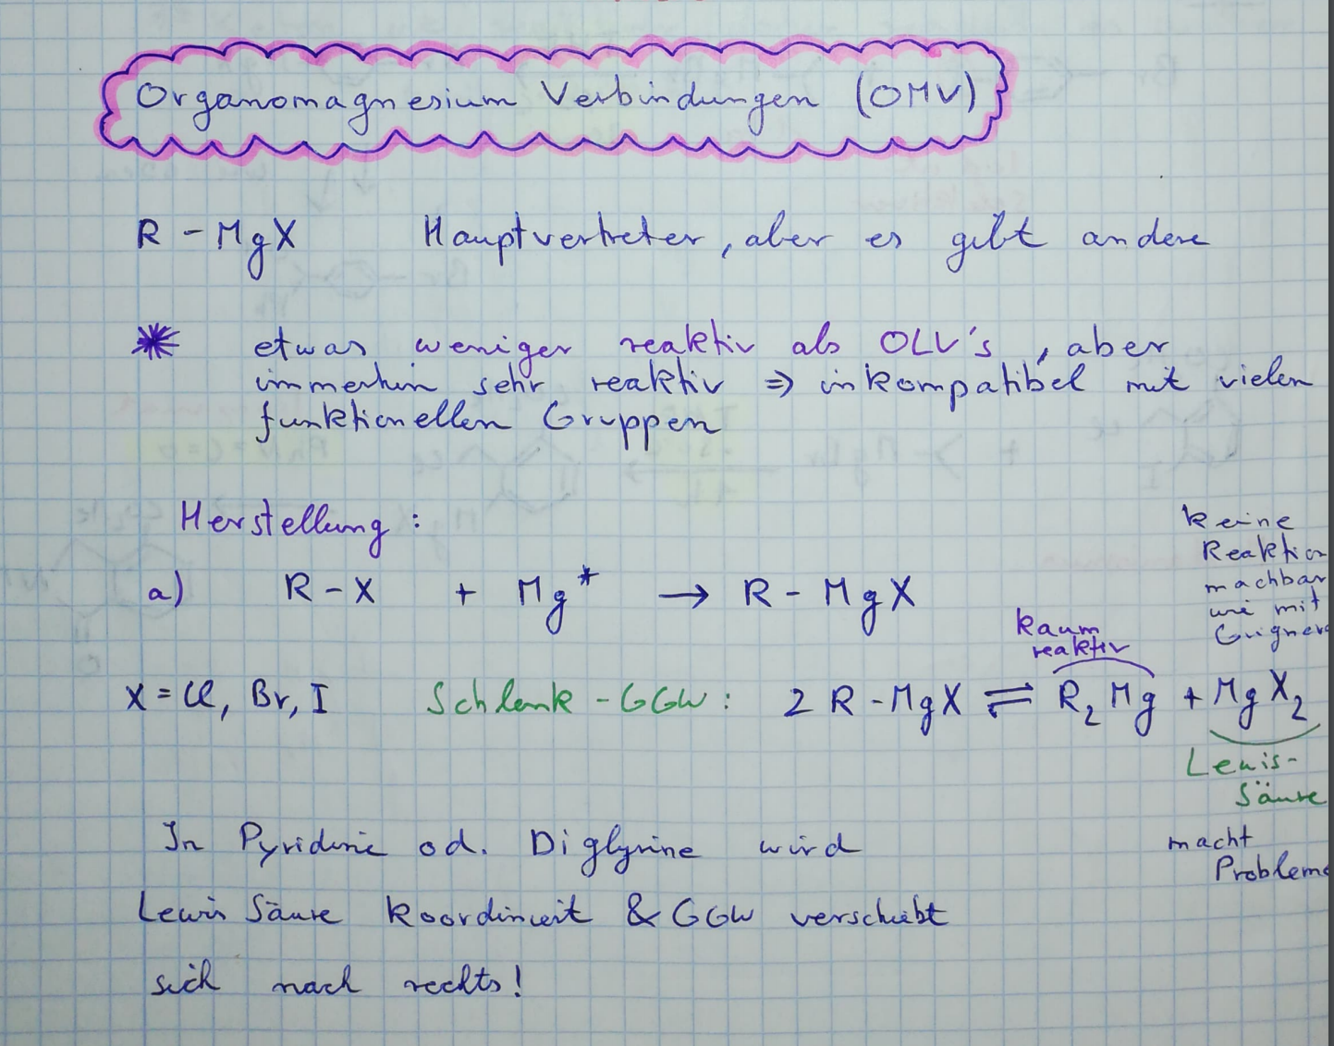 Organomagnesium Verbindungen (OMV)
R - MgX Hauptvertreter, aber es gibt andere
* etwas weniger reaktiv als OLV's, aber
immerhin sehr reaktiv => inkompatibel mit vielen
funktionellen Gruppen
Herstellung:
a) R-X + Mg* → R - MgX
keine
Reaktion
machbar
wie mit
Grignard
kaum
reaktiv
X = Cl, Br, I Schlenk - GGW: 2 R - MgX ⇌ R₂Mg + MgX₂
Lewis-
Säure
macht
Probleme
In Pyridine od. Diglyme wird
Lewis Säure koordiniert & GGW verschiebt
sich nach rechts!